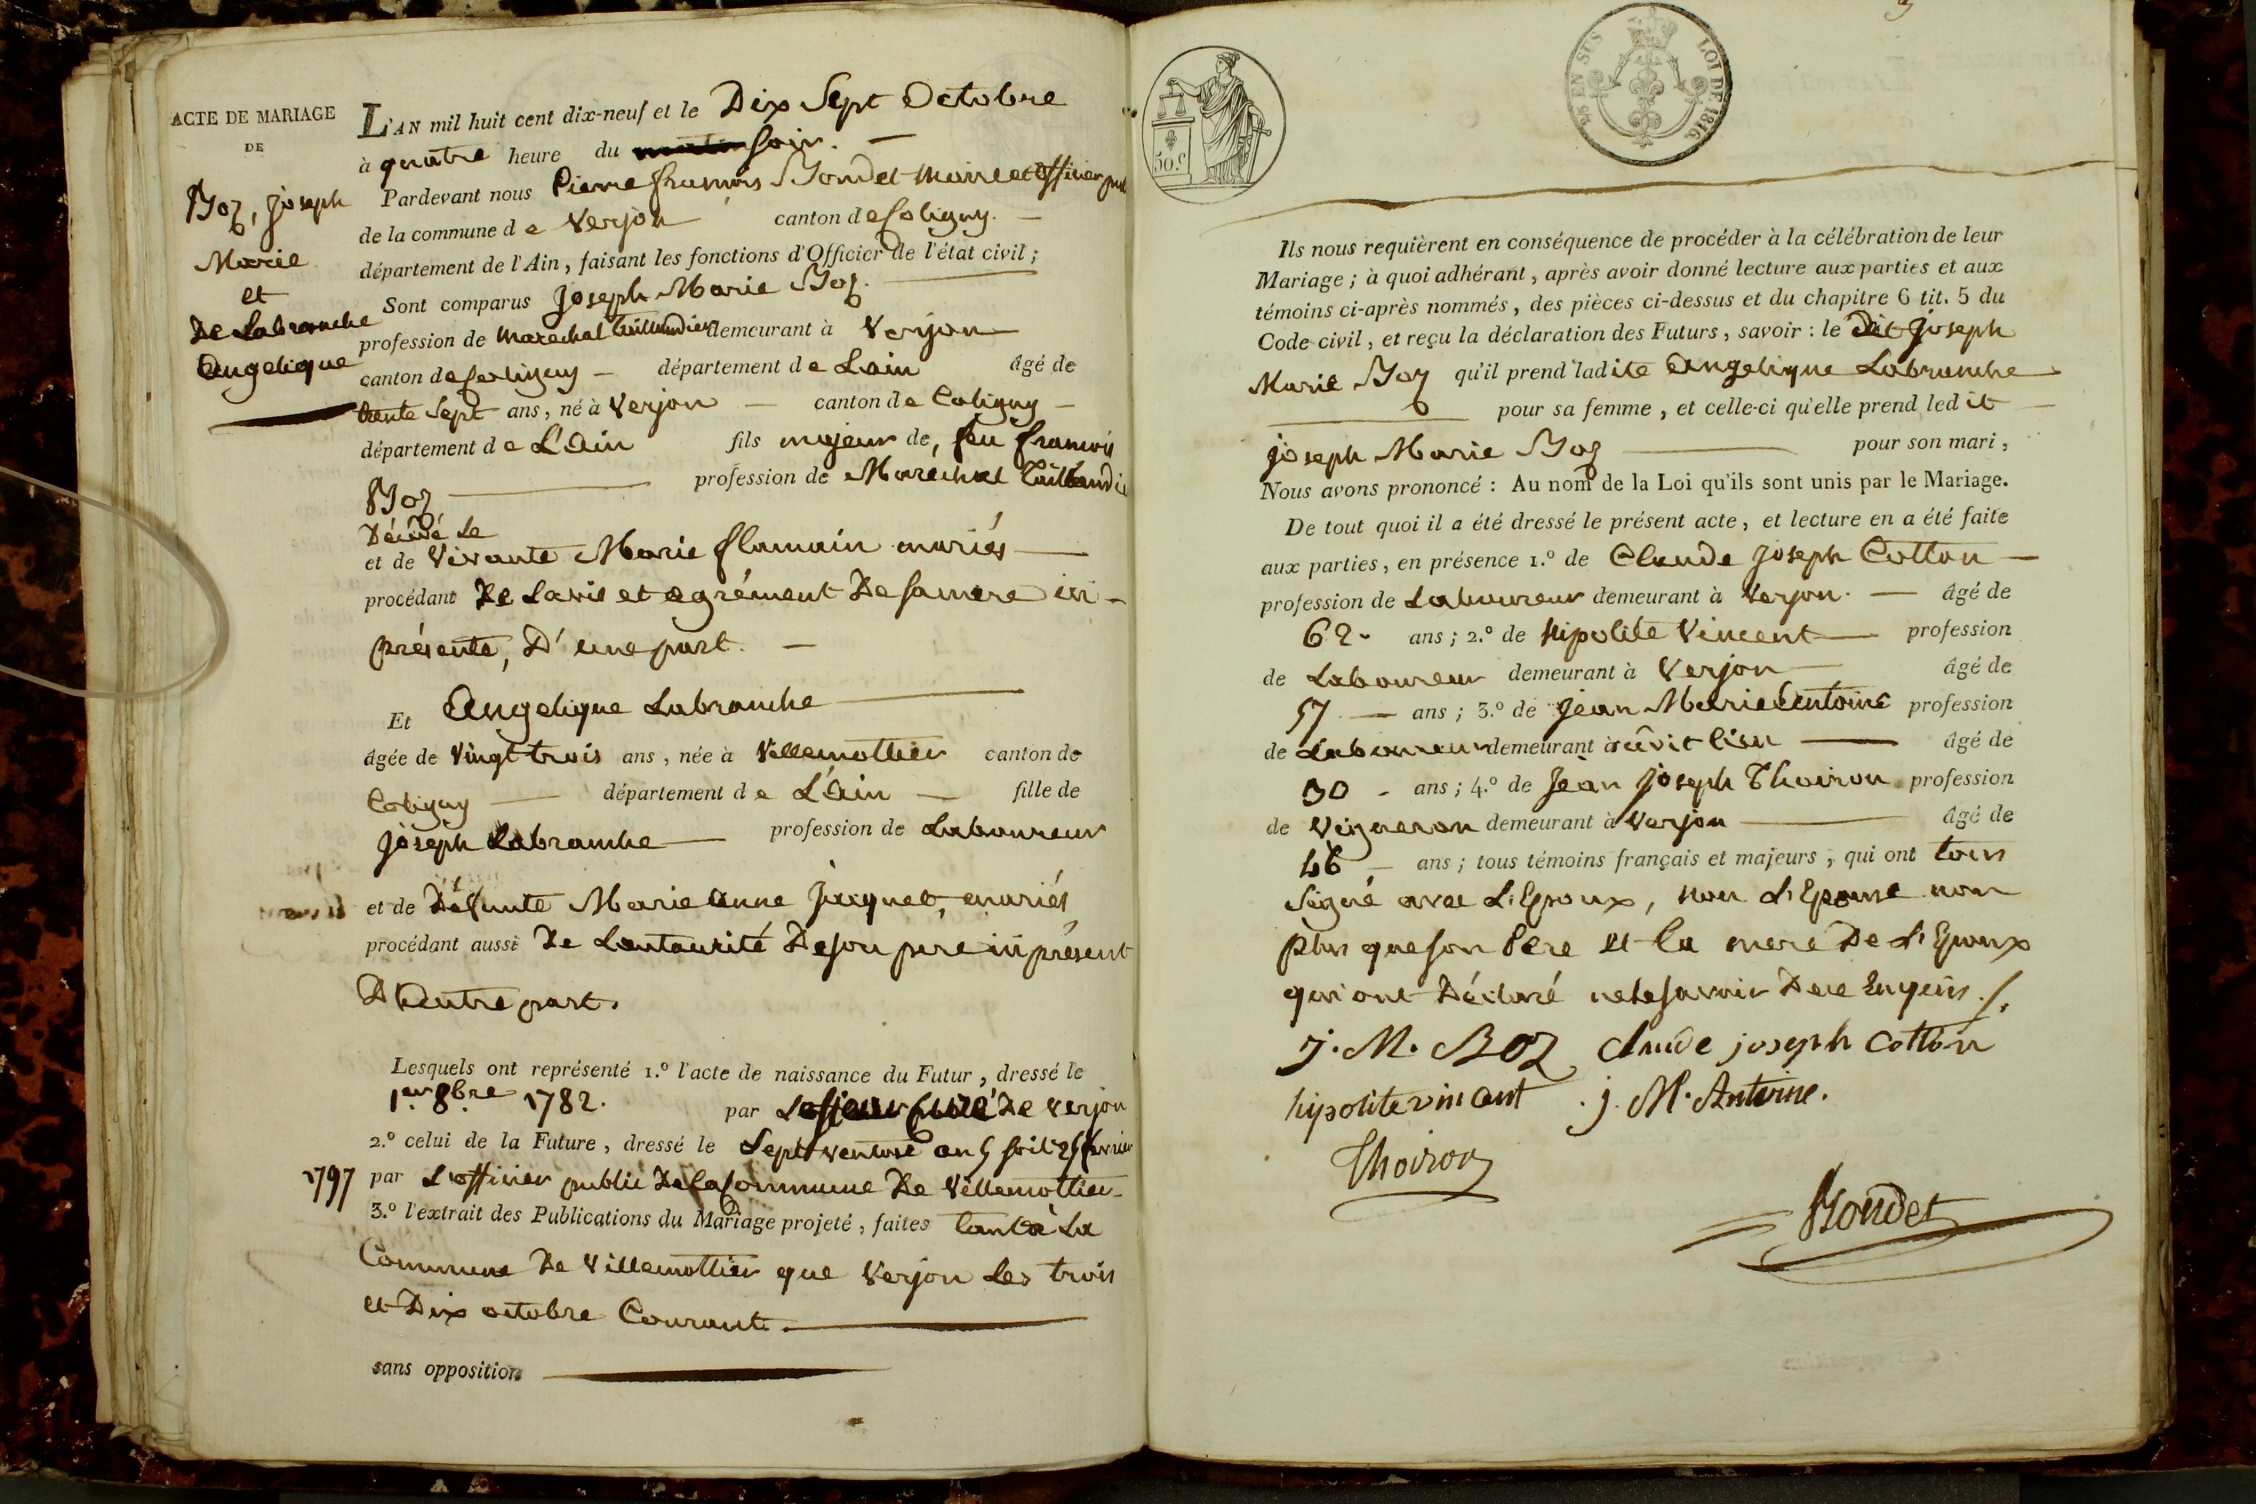 ACTE DE MARIAGE
DE
Boz, joseph
Marie
et
De Labranche
Angelique
L'AN mil huit cent dix-neuf et le Dix Sept Octobre
à quatre heure du soir.
Pardevant nous Pierre francois Bondet Maire et officier pub
de la commune de Verjon canton de Coligny.
département de l'Ain, faisant les fonctions d'Officier de l'état civil ;
Sont comparus Joseph Marie Boz.
profession de Marechal taillandier demeurant à Verjon
canton de Coligny département de Lain âgé de
trente Sept ans, né à Verjon canton de Coligny
département de L'Ain fils majeur de, feu francois
Boz profession de Marechal taillandie
Décédé Le
et de Vivante Marie flamain mariés
procédant De Lavis et agrément De sa mere ici
présente, D'une part.
Et Angelique Labranche
âgée de Vingt trois ans, née à Villemottier canton de
Coligny département de L'Ain fille de
joseph Labranche profession de Laboureur
et de Défunte Marie anne Jacquet, mariés
procédant aussi De Lautaurité De son pere ici présent
D'autre part.
Lesquels ont représenté 1.º l'acte de naissance du Futur, dressé le
1er 8bre 1782. par De Verjon
2.º celui de la Future, dressé le Sept ventose an 5 soit 25 fevrier
1797 par L'officier public De la Commune De Villemottier
3.º l'extrait des Publications du Mariage projeté, faites tant à La
Commune De Villemottier que Verjon Les trois
et Dix octobre Courant.
sans opposition
50 c.
EN SUS
LOI DE 1816.
Ils nous requièrent en conséquence de procéder à la célébration de leur
Mariage ; à quoi adhérant, après avoir donné lecture aux parties et aux
témoins ci-après nommés, des pièces ci-dessus et du chapitre 6 tit. 5 du
Code civil, et reçu la déclaration des Futurs, savoir : le Dit Joseph
Marie Boz qu'il prend ladite Angelique Labranche
pour sa femme, et celle-ci qu'elle prend ledit
joseph Marie Boz pour son mari,
Nous avons prononcé : Au nom de la Loi qu'ils sont unis par le Mariage.
De tout quoi il a été dressé le présent acte, et lecture en a été faite
aux parties, en présence 1.º de Claude Joseph Cotton
profession de Laboureur demeurant à Verjon. âgé de
62. ans ; 2.º de Hipolite Vincent profession
de Laboureur demeurant à Verjon âgé de
57 ans ; 3.º de Jean Marie Antoine profession
de Laboureur demeurant à âgé de
30 ans ; 4.º de Jean Joseph Thoiron profession
de Vigneron demeurant à Verjon âgé de
46 ans ; tous témoins français et majeurs ; qui ont tous
signé avec L'Epoux, non L'Epouse non
plus que son Pere et la mere De L'Epoux
qui ont Déclaré ne le savoir De ce Enquis ./.
J. M. Boz Claude joseph Cotton
hipolite vincent j. M. Antoine.
Thoiron
Bondet